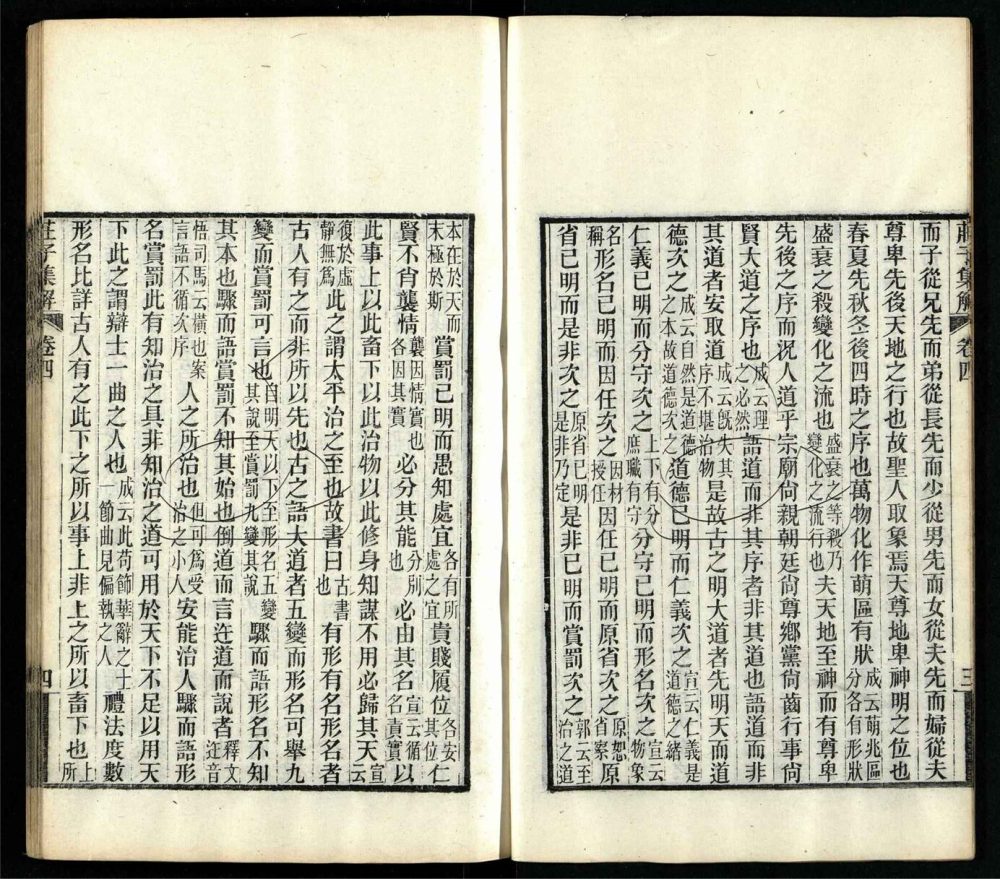 莊子集解 卷四 三
而子從兄先而弟從長先而少從男先而女從夫先而婦從夫
尊卑先後天地之行也故聖人取象焉天尊地卑神明之位也
春夏先秋冬後四時之序也萬物化作萌區有狀成云萌兆區分各有形狀
盛衰之殺變化之流也盛衰之等殺乃變化之流行也夫天地至神而有尊卑
先後之序而況人道乎宗廟尚親朝廷尚尊鄉黨尚齒行事尚
賢大道之序也成云理之必然語道而非其序者非其道也語道而非
其道者安取道成云既失其序不堪治物是故古之明大道者先明天而道
德次之成云自然是道德之本故道德次之道德已明而仁義次之宣云仁義是道德之緒
仁義已明而分守次之上下有分庶職有守分守已明而形名次之宣云物象
名稱形名已明而因任次之因材授任因任已明而原省次之原恕省察原
省已明而是非次之原省已明是非乃定是非已明而賞罰次之郭云至治之道
本在於天而末極於斯賞罰已明而愚知處宜各有所處之宜貴賤履位各安其位仁
賢不肖襲情襲因情實也各因其實必分其能分別也必由其名宣云循名責實以
此事上以此畜下以此治物以此修身知謀不用必歸其天宣云
復於虛靜無爲此之謂太平治之至也故書曰古書也有形有名形名者
古人有之而非所以先也古之語大道者五變而形名可舉九
變而賞罰可言也自明天以下至形名五變其說至賞罰九變其說驟而語形名不知
其本也驟而語賞罰不知其始也倒道而言迕道而說者釋文迕音
悟司馬云橫也案言語不循次序人之所治也但可爲受治之小人安能治人驟而語形
名賞罰此有知治之具非知治之道可用於天下不足以用天
下此之謂辯士一曲之人也成云此苟飾華辭之士一節曲見偏執之人禮法度數
形名比詳古人有之此下之所以事上非上之所以畜下也上所
莊子集解 卷四 四